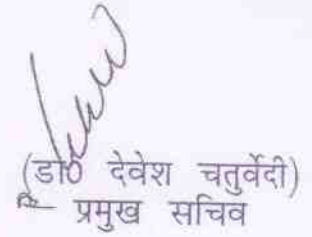 (डा0 देवेश चतुर्वेदी)
प्रमुख सचिव